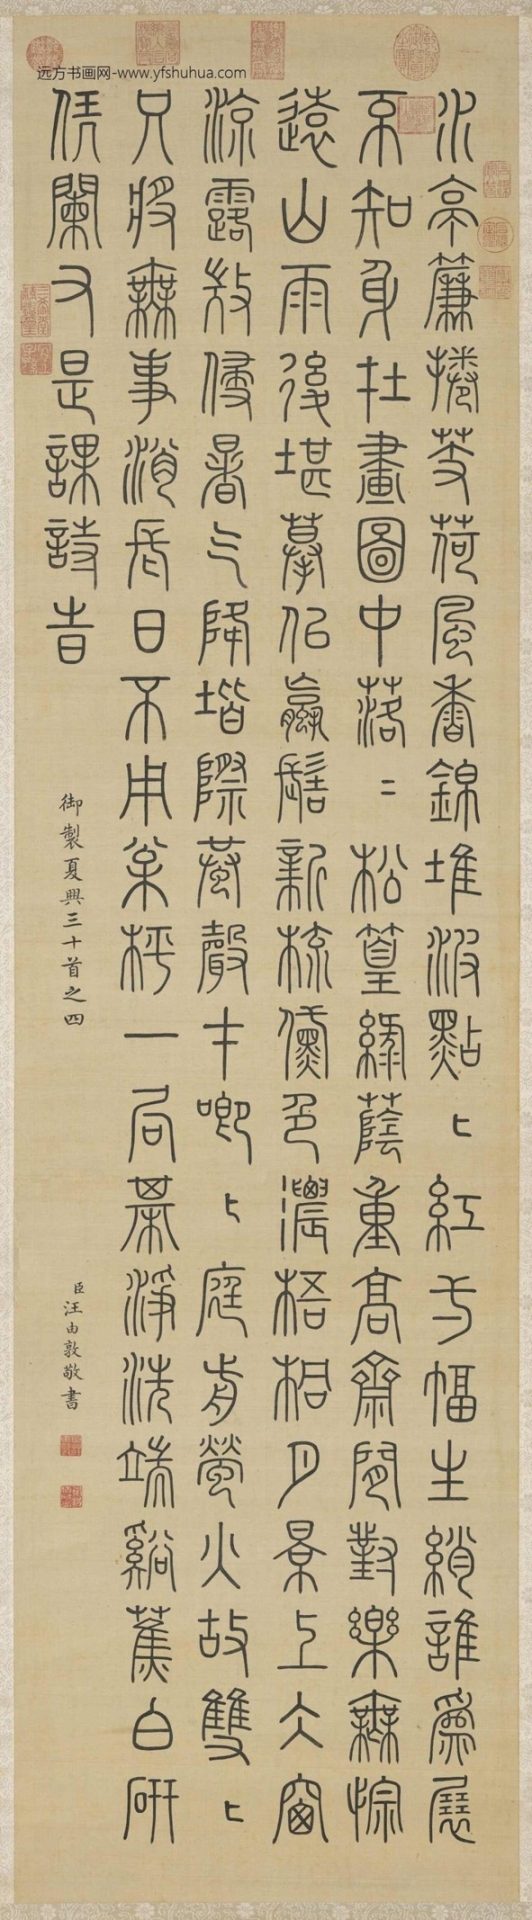 远方书画网-www.yfshuhua.com
水亭簾捲芰荷風香錦堆波點〻紅方幅生綃誰為展
不知身在畫圖中落〻松篁綠蔭重高齋閒對樂無悰
遠山雨後堪摹似嬴髻新梳黛色濃梧桐月景上六窗
涼露教侵暑气降堦際蛩聲才唧〻庭前螢火故雙〻
只將無事消長日不用楸枰一局棊淨洗端谿蕉白研
凭闌又是課詩時
御製夏興三十首之四
臣汪由敦敬書